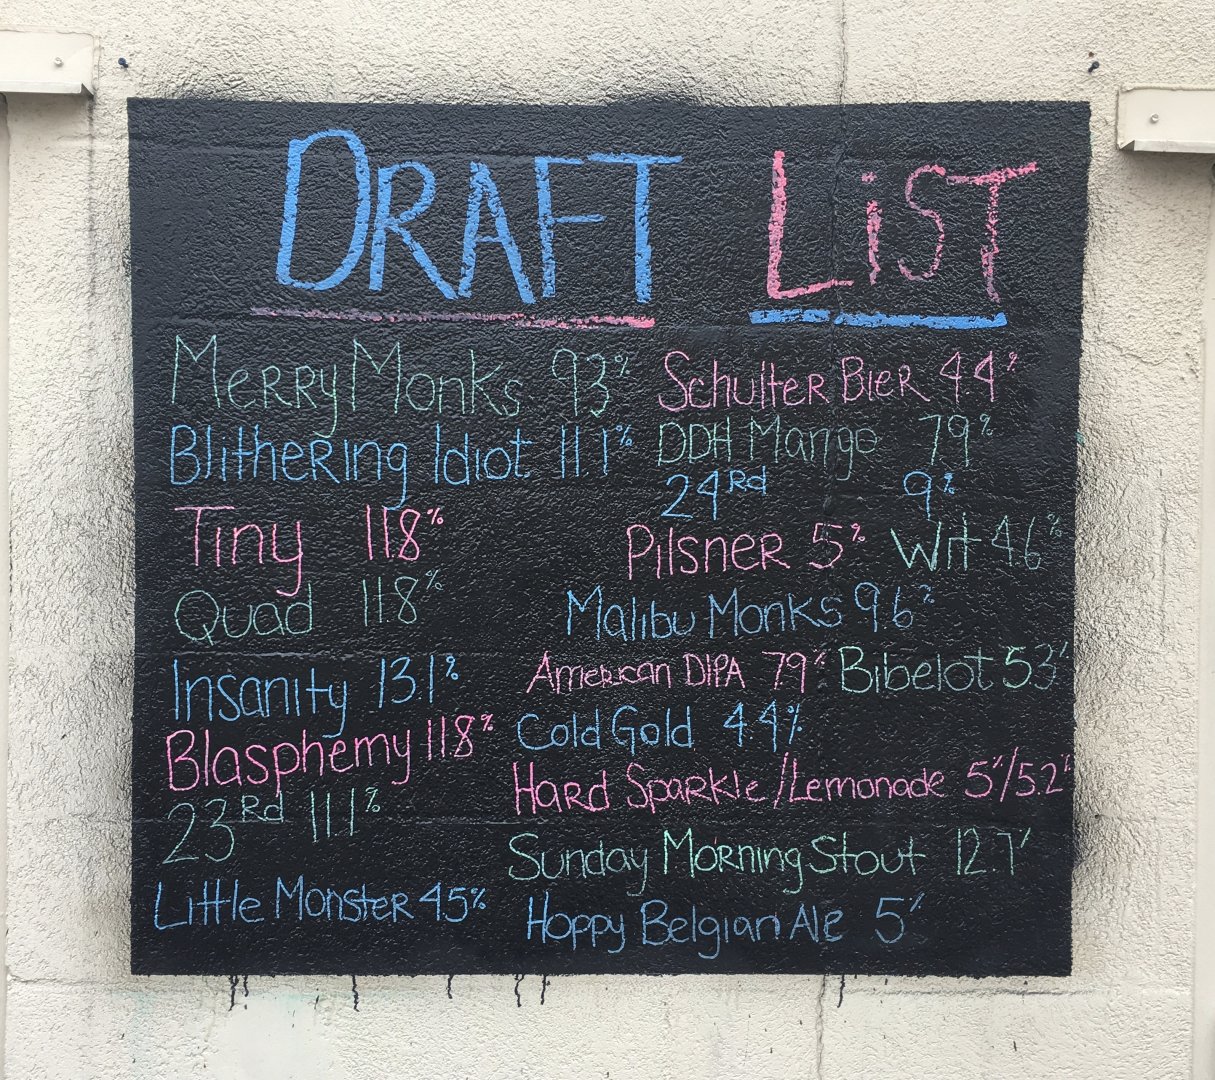 DRAFT LiST
Merry Monks 9.3%
Blithering Idiot 11.1%
Tiny 11.8%
Quad 11.8%
Insanity 13.1%
Blasphemy 11.8%
23rd 11.1%
Little Monster 4.5%
Schulter Bier 4.4%
DDH Mango 7.9%
24rd 9%
Pilsner 5% Wit 4.6%
Malibu Monks 9.6%
American DIPA 7.9% Bibelot 5.3%
Cold Gold 4.4%
Hard Sparkle/Lemonade 5%/5.2%
Sunday Morning Stout 12.7%
Hoppy Belgian Ale 5%